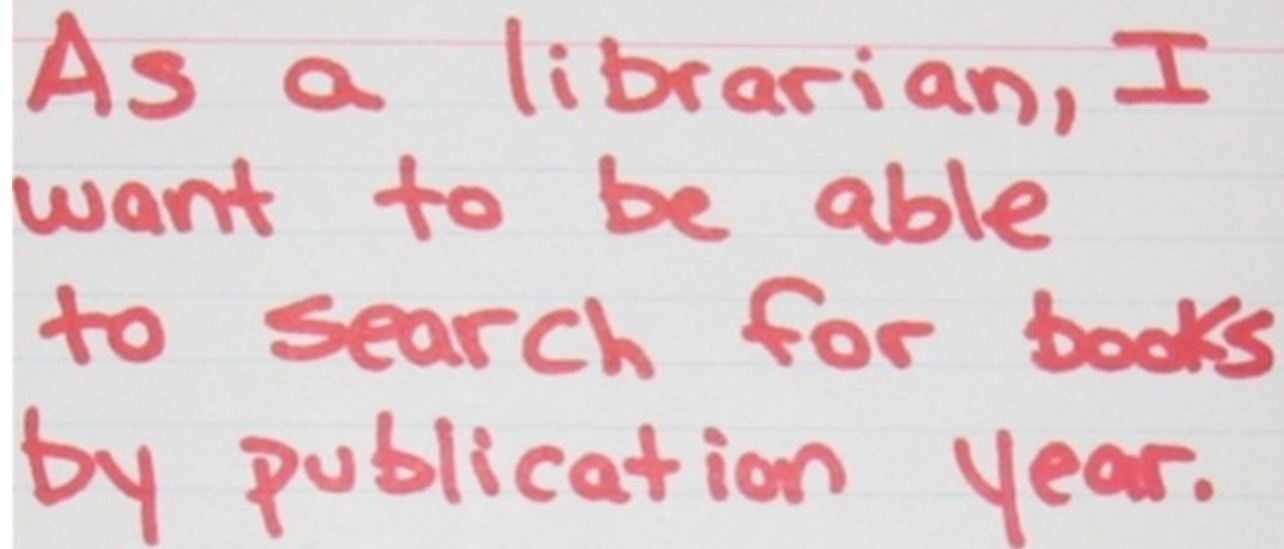 As a librarian, I
want to be able
to search for books
by publication year.